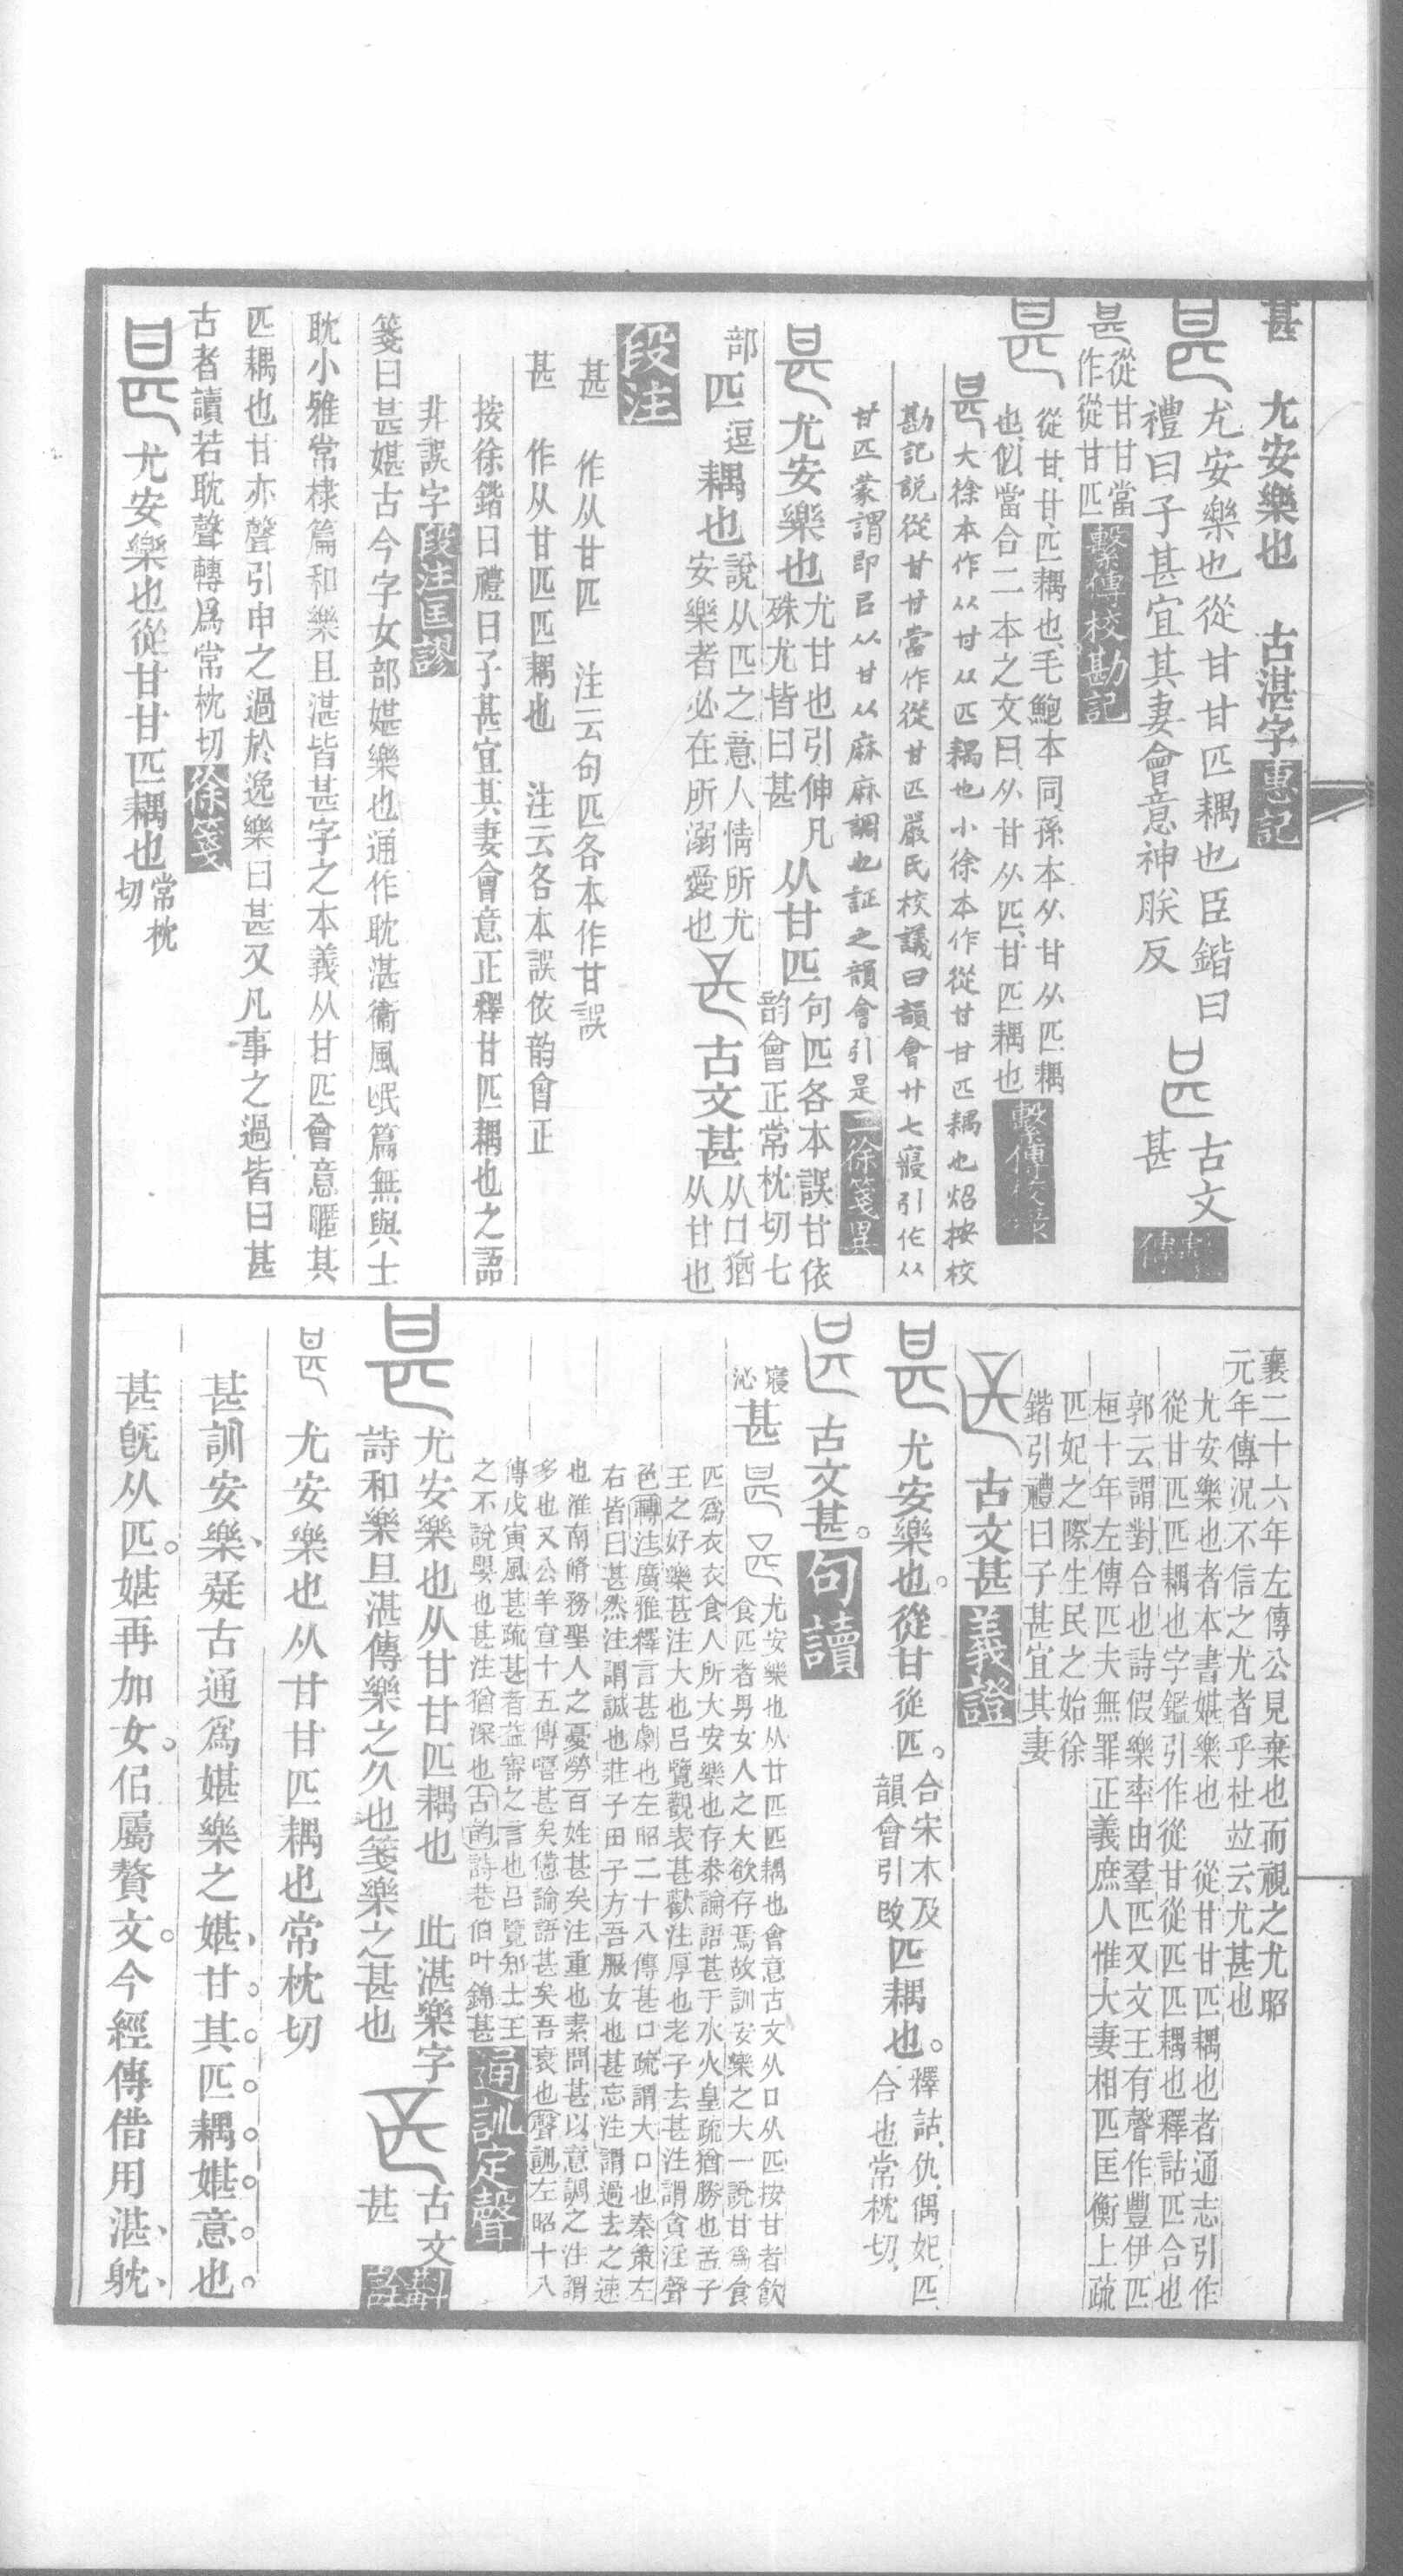 甚　尤安樂也　古湛字惠記
尤安樂也從甘甘匹耦也臣鍇曰
禮曰子甚宜其妻會意神朕反
古文
甚
從甘甘當
作從甘匹
繫傳校勘記
從甘、甘、匹耦也、毛鮑本同、孫本从甘从匹、耦
也、似當合二本之文曰、从甘从匹、甘匹耦也
大徐本作从甘从匹耦也小徐本作從甘甘匹耦也炤按校
勘記説從甘甘當作從甘匹嚴氏校議曰韻會廿七寢引作从
甘匹蒙謂即㠯从甘从麻麻調也証之韻會引是二徐箋異
尤安樂也
尤甘也引伸凡
殊尤皆曰甚
从甘匹
句匹各本誤甘依
韵會正常枕切七
部
匹
逗
耦也
說从匹之意人情所尤
安樂者必在所溺愛也
古文甚
从口猶
从甘也
段注
甚　作从甘匹　注云句匹各本作甘誤
甚　作从甘匹匹耦也　注云各本誤依韵會正
按徐鍇曰禮曰子甚宜其妻會意正釋甘匹耦也之語
非誤字段注匡謬
箋曰甚媅古今字女部媅樂也通作耽湛衞風氓篇無與士
耽小雅常棣篇和樂且湛皆甚字之本義从甘匹會意暱其
匹耦也甘亦聲引申之過於逸樂曰甚又凡事之過皆曰甚
古者讀若耽聲轉爲常枕切徐箋
尤安樂也從甘甘匹耦也
常枕
切
襄二十六年左傳公見棄也而視之尤昭
元年傳況不信之尤者乎杜竝云尤甚也
尤安樂也者本書媅樂也　從甘甘匹耦也者通志引作
從甘匹匹耦也字鑑引作從甘從匹匹耦也釋詁匹合也
郭云謂對合也詩假樂率由羣匹又文王有聲作豐伊匹
桓十年左傳匹夫無罪正義庶人惟大妻相匹匡衡上疏
匹妃之際生民之始徐
鍇引禮曰子甚宜其妻
古文甚義證
尤安樂也。從甘從匹。
合宋本及
韻會引改
匹耦也。
釋詁、仇、偶、妃、匹、
合也常枕切、
古文甚。句讀
寢
沁
甚
尤安樂也从甘匹匹耦也會意古文从口从匹按甘者飮
食匹者男女人之大欲存焉故訓安樂之大一說甘爲食
匹爲衣衣食人所大安樂也存叅論語甚于水火皇疏猶勝也孟子
王之好樂甚注大也呂覽觀表甚歡注厚也老子去甚注謂貪淫聲
色轉注廣雅釋言甚劇也左昭二十八傳甚口疏謂大口也秦策左
右皆曰甚然注謂誠也莊子田子方吾服女也甚忘注謂過去之速
也淮南脩務聖人之憂勞百姓甚矣注重也素問甚以意調之注謂
多也又公羊宣十五傳嘻甚矣憊論語甚矣吾衰也聲訓左昭十八
傳戊寅風甚疏甚者益審之言也呂覽知士王
之不說嬰也甚注猶深也古韵詩巷伯叶錦甚
通訓定聲
尤安樂也从甘甘匹耦也　此湛樂字
詩和樂且湛傳樂之久也箋樂之甚也
古文
甚
斠
詮
尤安樂也从甘甘匹耦也常枕切
甚訓安樂、疑古通爲媅樂之媅、甘。其。匹。耦。媅。意。也。
甚旣从匹。媅再加女。佀屬贅文。今經傳借用湛、躭、